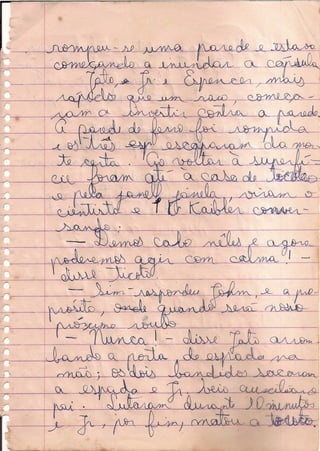 rompeu-se uma parede e estava
começando a inundar a cápsula
Jato, e Jr. e Spencer, mais
rápido que um raio, começa-
ram a investir contra a parede.
A parede de ferro foi rompida
e os três esp escaparam da mor-
te certa. Ao voltar à superfí-
cie foram até a casa de Ticoté
e pela janel janela, viram o
cientista e Kaibler conver-
sando:
— Demos cabo nêles e agora
poderemos agir com calma! —
disse Ticoté
— Sim - respondeu John, e a pro-
posito, quando será nosso
próximo roubo
— Nunca! - disse Jato arrom-
bando a porta, de espada na
mão; os dois bandidos sacaram
a espada e Jr. veio auxiliar o
pai. Lutaram durante 10 minutos
e Jr., por fim, matou a